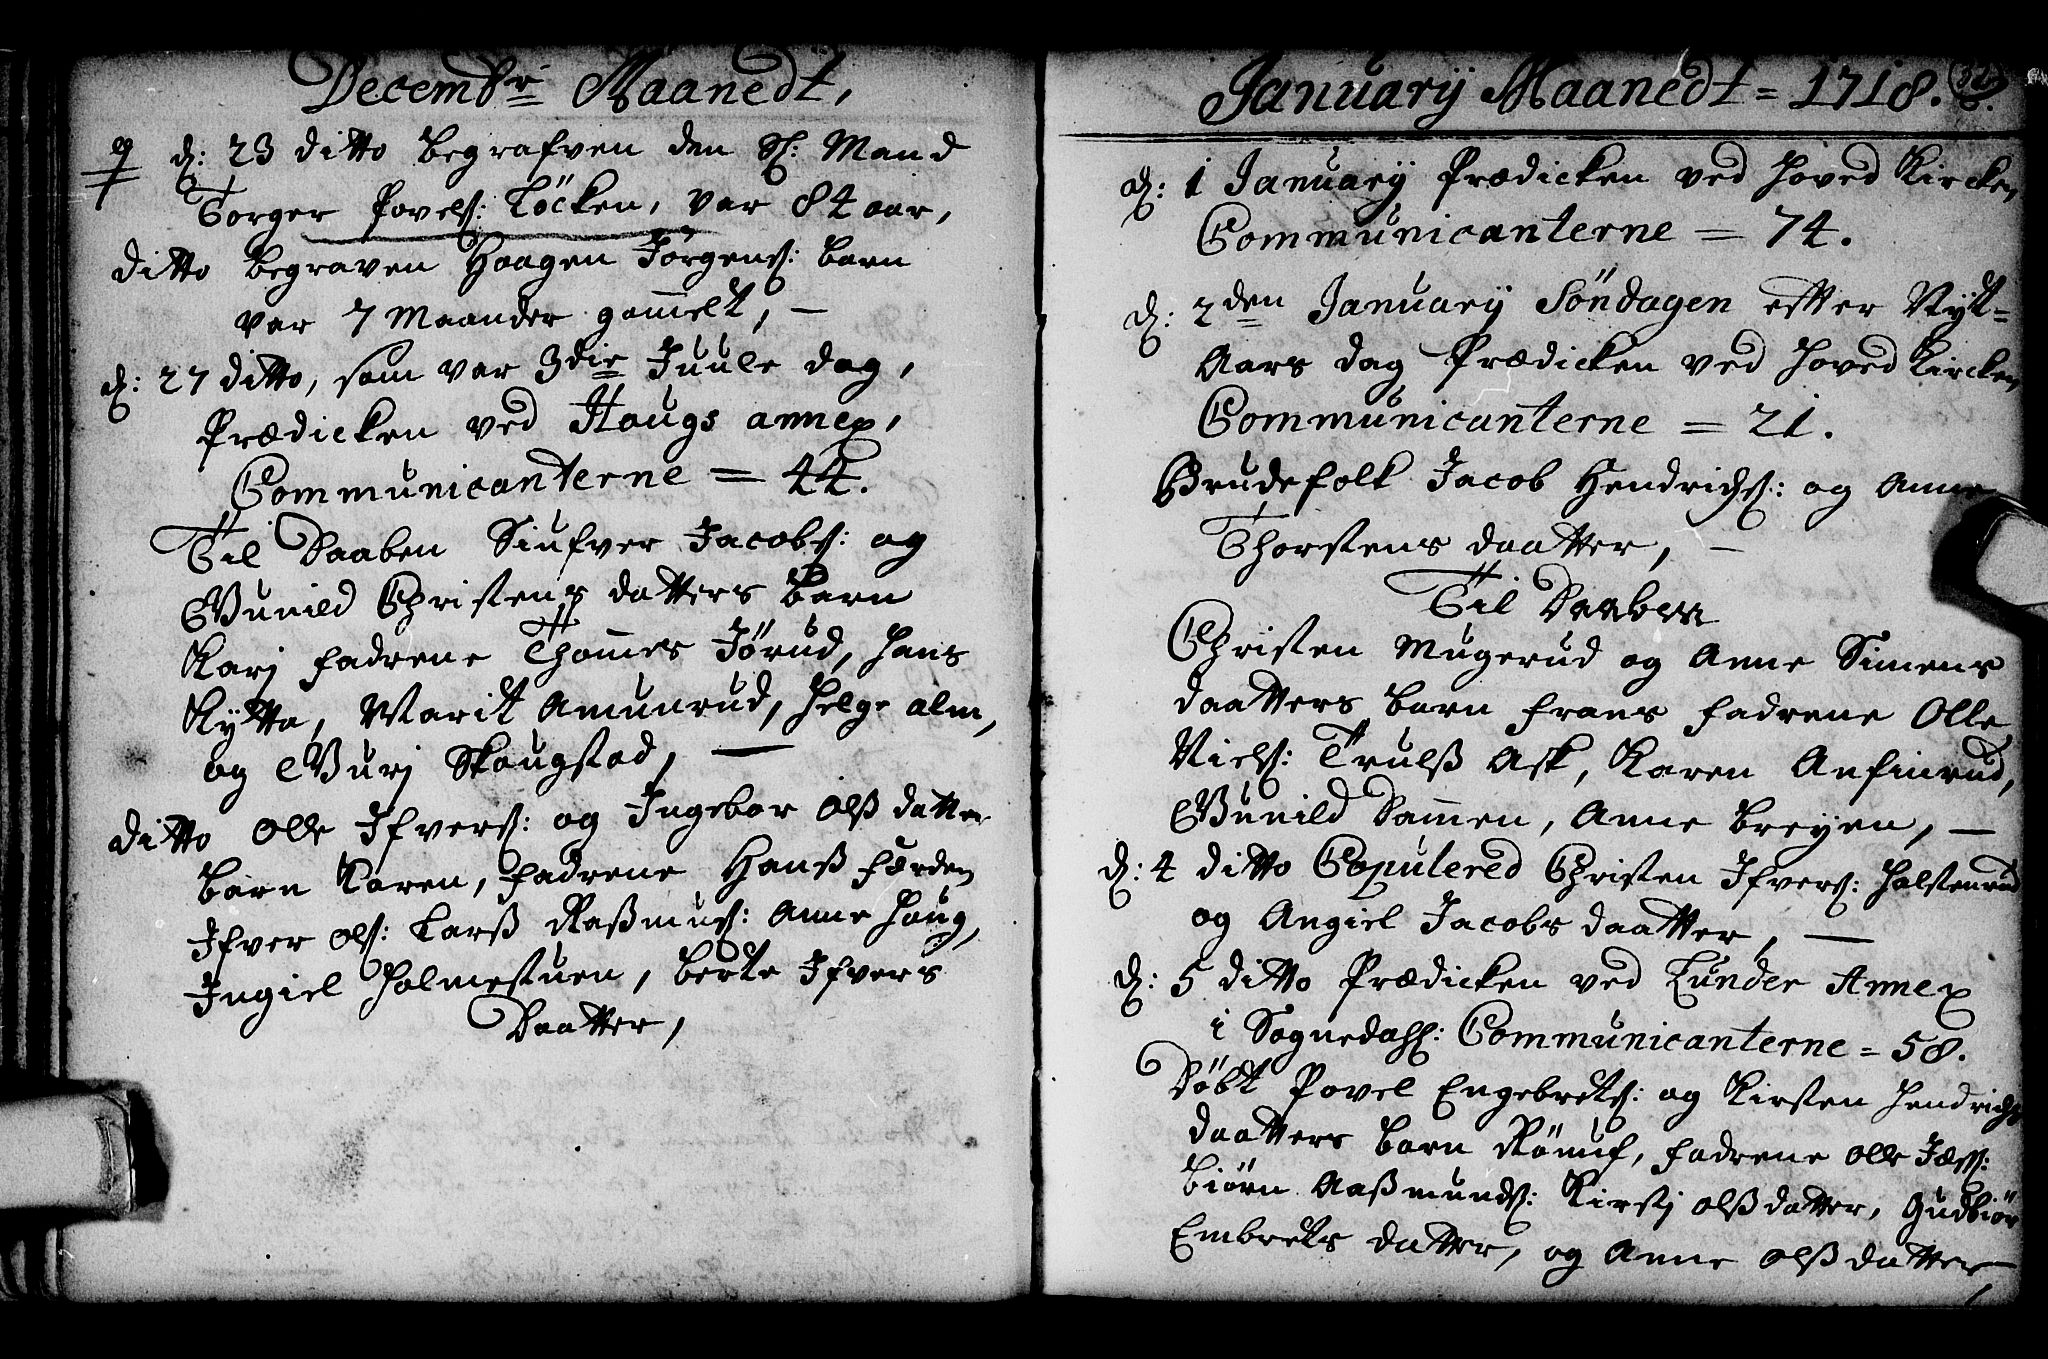 Decembr Maanedt,
d: 23 ditto begrafven den Sl: Mand
Torger Povels: Löcken, var 84 aar,
ditto begraven Haagen Jörgens: barn
var 7 Maander gam̄elt, —
d: 27 ditto, som var 3die Juule dag,
Prædicken ved Haugs annex,
Communicanterne = 44.
Til Daaben Siufver Jacobs: og
Gunild Christens datters Barn
Karj fadrene Thom̄es Jörud, Hans
Kytta, Marit Amunrud, Helge alm,
og Gurj Skougstad, —
ditto Olle Ifvers: og Ingebor Olß datter
barn Karen, fadrene Hanß Færden
Ifver Ols: Larß Raßmus: Anne Houg,
Ingiel Holmestuen, berte Ifvers
Daatter,
Januarij Maanedt = 1718.
d: 1 Januarij Prædicken ved Hoved Kircken
Communicanterne = 74.
d: 2den Januarij Söndagen efter Nyt=
Aars dag Prædicken ved Hoved Kircken
Communicanterne = 21.
Brudefolk Jacob Hendrichs: og Anne
Thorstens daatter, —
Til Daaben
Christen Mugerud og Anne Simens
daatters barn frans fadrene Olle
Niels: Trulß Ask, Karen Anfinrud,
Gunild Dam̄en, Anne Breyen, —
d: 4 ditto Copulered Christen Ifvers: Holstenrud
og Angiel Jacobs daatter, —
d: 5 ditto Prædicken ved Lunder Annex
i Sognedahl: Communicanterne = 58.
Döbt Povel Engebrets: og Kirsten Hendrichs
daatters barn fadrene Olle
Biörn Aaßmunds: Kirstj Olß datter, Gudbiör
Embrets datter, og Anne Olß datter,